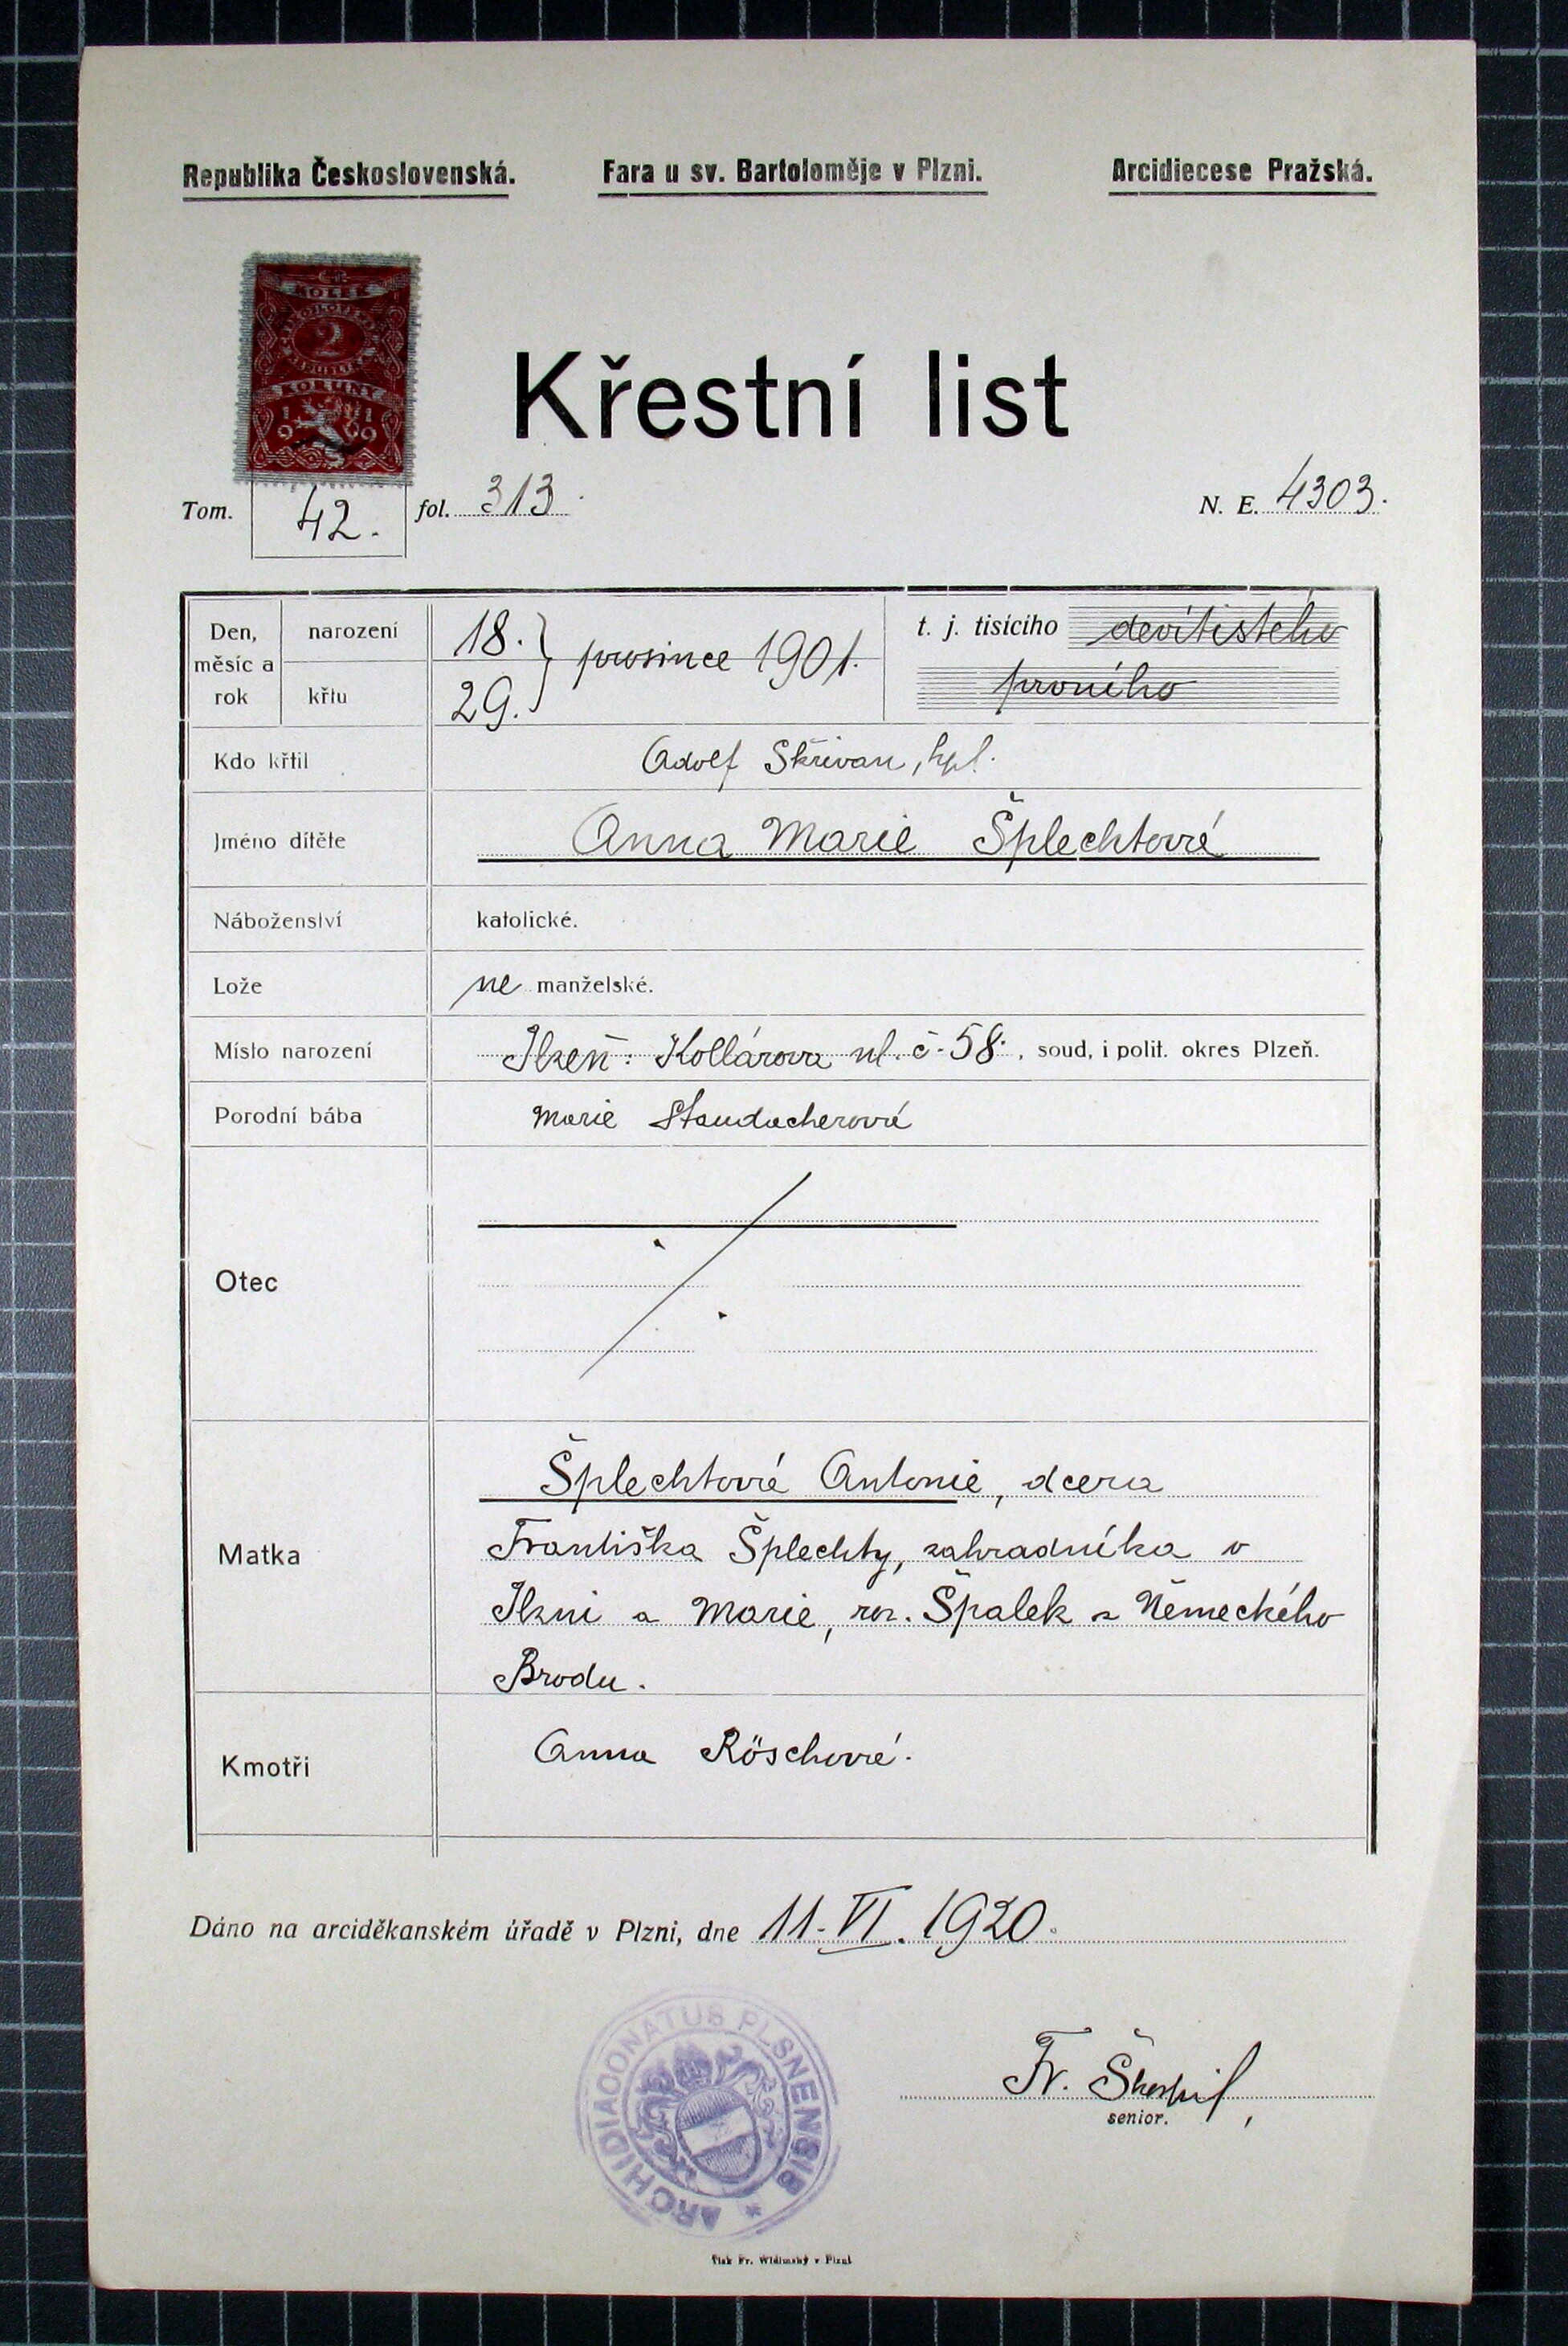 Republika Československá. Fara u sv. Bartoloměje v Plzni. Arcidiecese Pražská.
KOLEK
2
KORUNY
1919
Křestní list
Tom. 42. fol. 313. N. E. 4303.
Den, měsíc a rok narození 18. prosince 1901. t. j. tisícího devítistého
křtu 29. prvního
Kdo křtil Adolf Skřivan, kpl.
Jméno dítěte Anna Marie Šplechtová
Náboženství katolické.
Lože ne manželské.
Místo narození Plzeň: Kollárova ul. č. 58., soud, i polit. okres Plzeň.
Porodní bába Marie Staudacherová
Otec
Matka Šplechtová Antonie, dcera
Františka Šplechty, zahradníka v
Plzni a Marie, roz. Špalek z Německého
Brodu.
Kmotři Anna Röschová.
Dáno na arciděkanském úřadě v Plzni, dne 11. VI. 1920.
ARCHIDIACONATUS PLSNENSIS *
Fr.
senior.
Tisk Fr. Widimský v Plzni